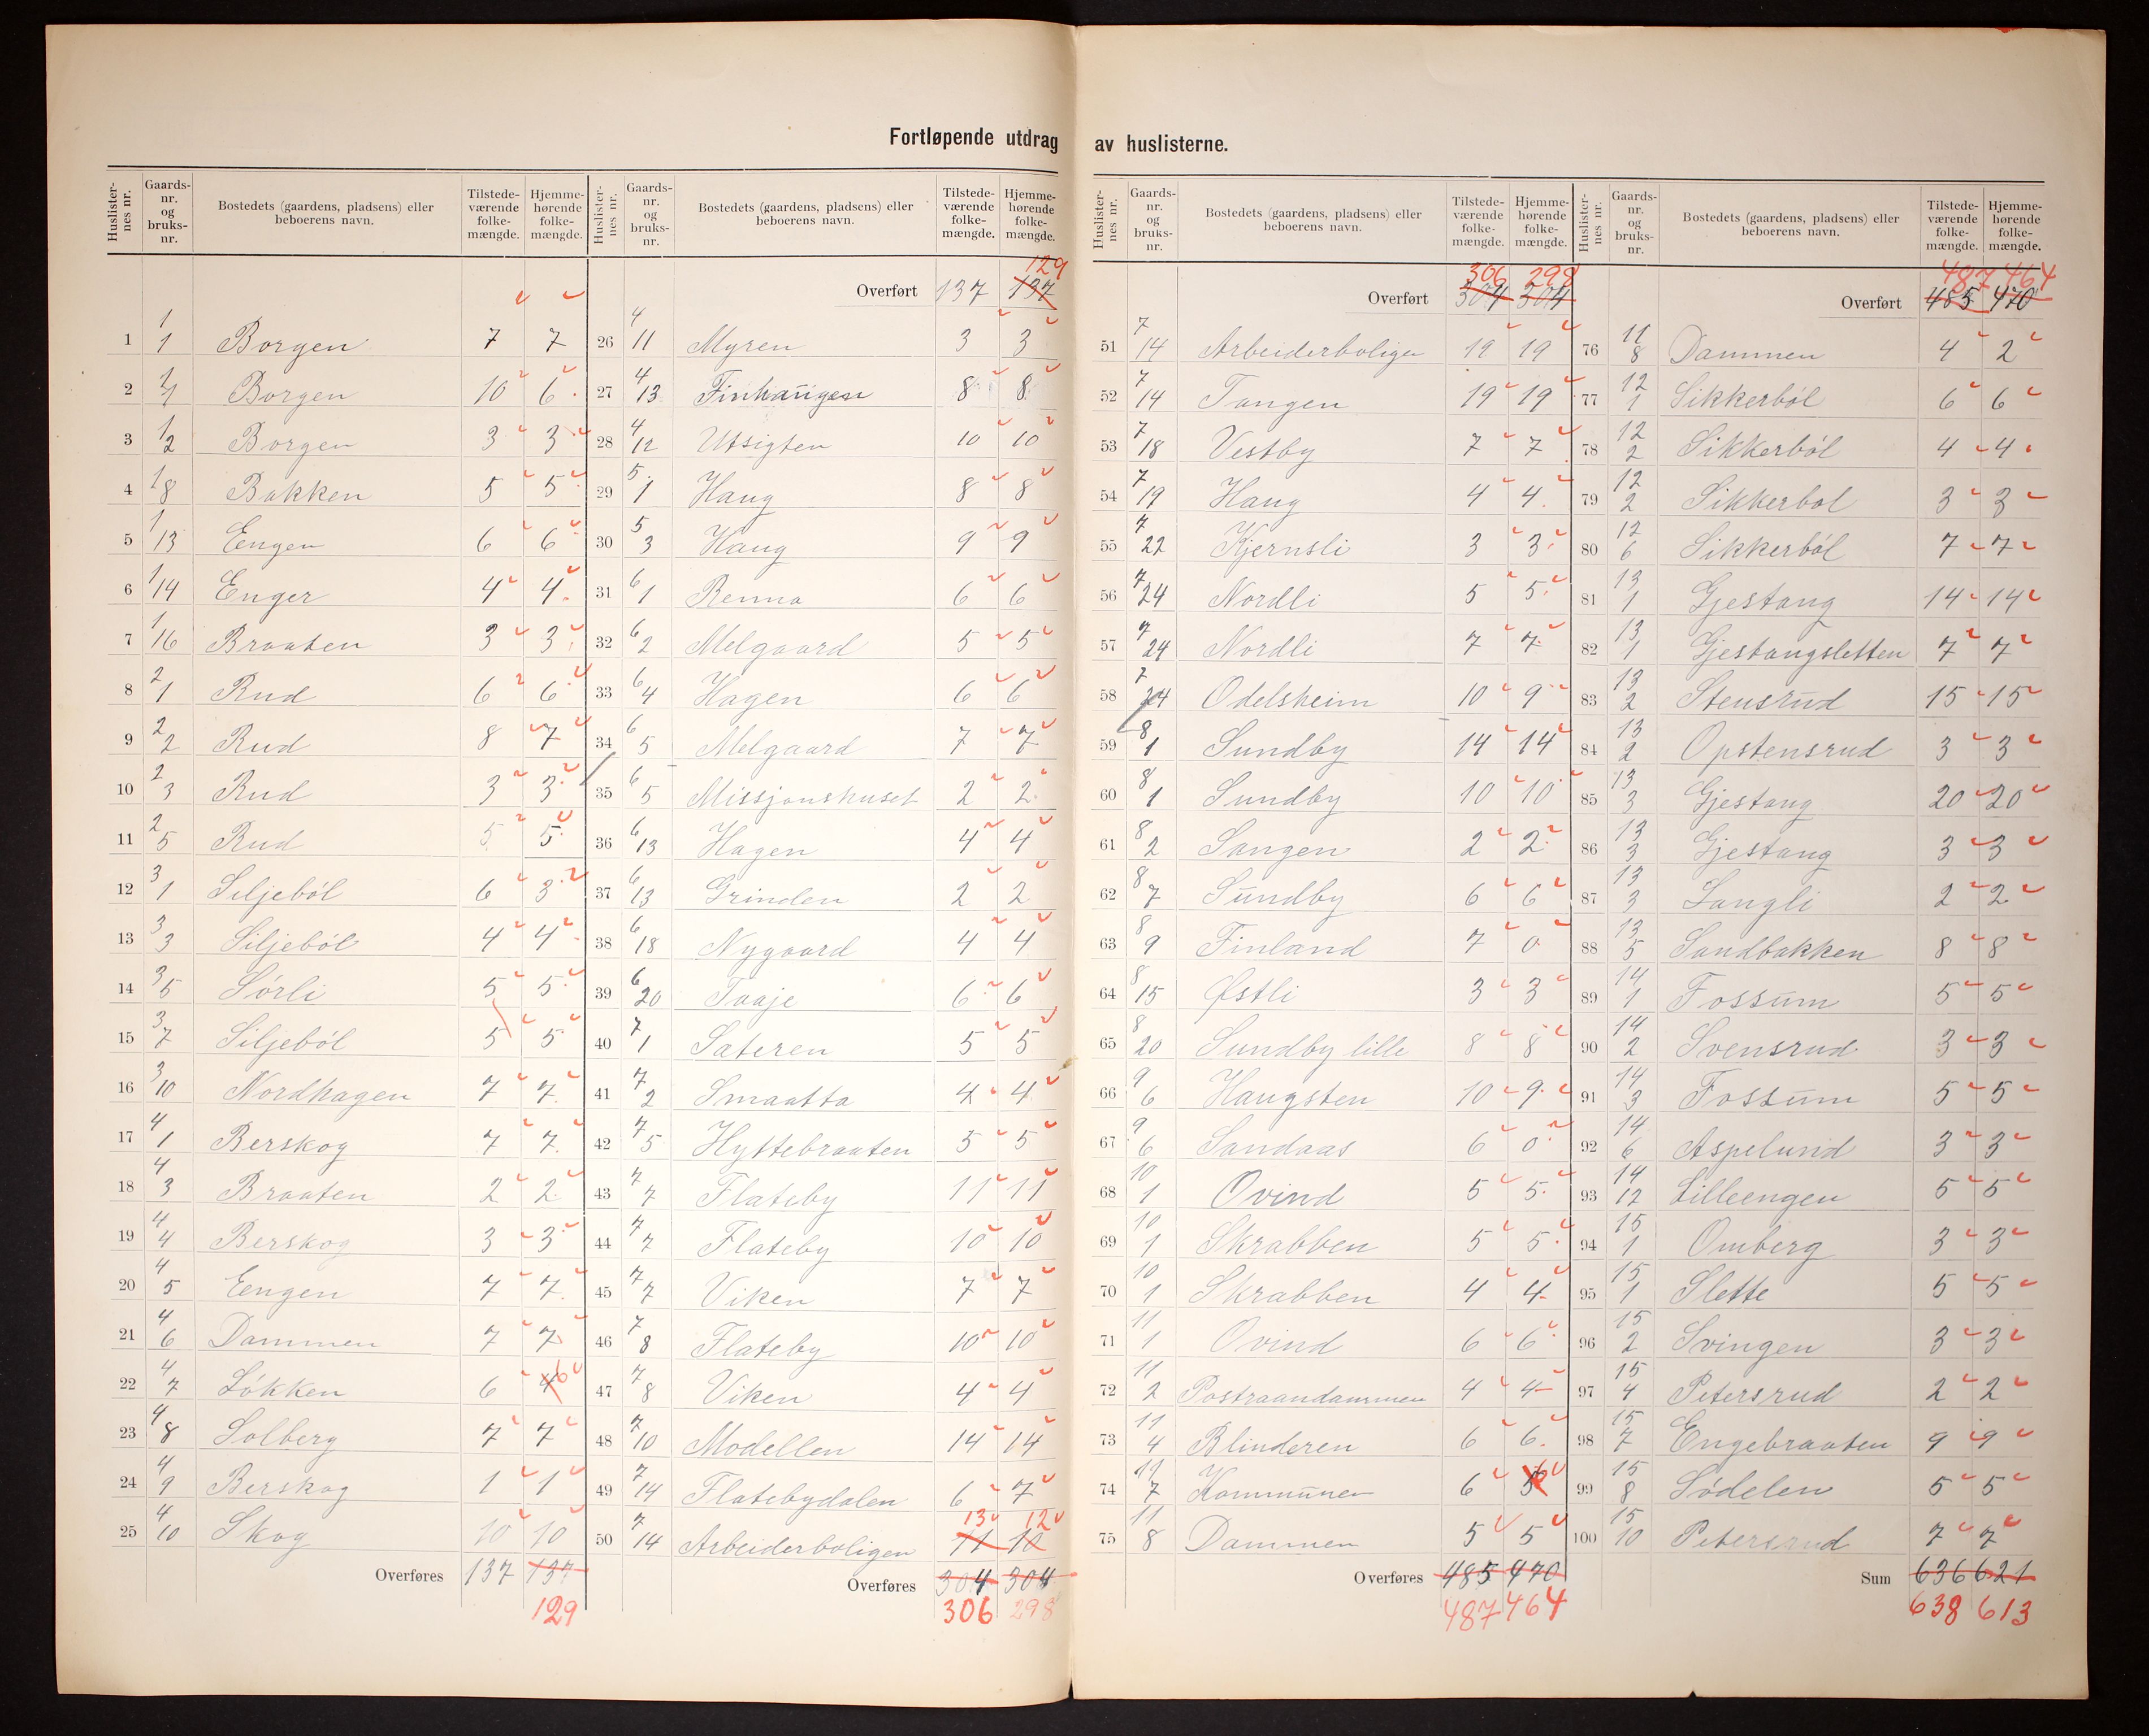 Fortløpende utdrag av huslisterne.
Huslisternes nr. Gaardsnr. og bruksnr. Bostedets (gaardens, pladsens) eller beboerens navn. Tilstedeværende folkemængde. Hjemmehørende folkemængde.
1 1/1 Borgen 7 7
2 1/1 Borgen 10 6
3 1/2 Borgen 3 3
4 1/8 Bakken 5 5
5 1/13 Engen 6 6
6 1/14 Enger 4 4
7 1/16 Braaten 3 3
8 2/1 Rud 6 6
9 2/2 Rud 8 7
10 2/3 Rud 3 3
11 2/5 Rud 5 5
12 3/1 Siljeböl 6 3
13 3/3 Siljeböl 4 4
14 3/5 Sörli 5 5
15 3/7 Siljeböl 5 5
16 3/10 Nordhagen 7 7
17 4/1 Berskog 7 7
18 4/3 Braaten 2 2
19 4/4 Berskog 3 3
20 4/5 Eengen 7 7
21 4/6 Dammen 7 7
22 4/7 Lökken 6 4 6
23 4/8 Solberg 7 7
24 4/9 Berskog 1 1
25 4/10 Skog 10 10
Overføres 137 137
129
Huslisternes nr. Gaardsnr. og bruksnr. Bostedets (gaardens, pladsens) eller beboerens navn. Tilstedeværende folkemængde. Hjemmehørende folkemængde.
129
Overført 137 137
26 4/11 Myren 3 3
27 4/13 Finhaugen 8 8
28 4/12 Utsigten 10 10
29 5/1 Haug 8 8
30 5/3 Haug 9 9
31 6/1 Renna 6 6
32 6/2 Melgaard 5 5
33 6/4 Hagen 6 6
34 6/5 Melgaard 7 7
35 6/5 Missjonshuset 2 2
36 6/13 Hagen 4 4
37 6/13 Grinden 2 2
38 6/18 Nygaard 4 4
39 6/20 Taaje 6 6
40 7/1 Sateren 5 5
41 7/2 Smaatta 4 4
42 7/5 Hyttebraaten 5 5
43 7/7 Flateby 11 11
44 7/7 Flateby 10 10
45 7/7 Viken 7 7
46 7/8 Flateby 10 10
47 7/8 Viken 4 4
48 7/10 Modellen 14 14
49 7/14 Flatebydalen 6 7
13 12
50 7/14 Arbeiderboligen 11 10
Overføres 304 304
306 298
Huslisternes nr. Gaardsnr. og bruksnr. Bostedets (gaardens, pladsens) eller beboerens navn. Tilstedeværende folkemængde. Hjemmehørende folkemængde.
306 298
Overført 304 304
51 7/14 Arbeiderbolige 19 19
52 7/14 Tangen 19 19
53 7/18 Vestby 7 7
54 7/19 Haug 4 4
55 7/22 Kjernsli 3 3
56 7/24 Nordli 5 5
57 7/24 Nordli 7 7
58 7/24 Odelsheim 10 9
59 8/1 Sundby 14 14
60 8/1 Sundby 10 10
61 8/2 Sangen 2 2
62 8/7 Sundby 6 6
63 8/9 Finland 7 0
64 8/15 Østli 3 3
65 8/20 Sundby lille 8 8
66 9/6 Haugsten 10 9
67 9/6 Sandaas 6 0
68 10/1 Ovind 5 5
69 10/1 Skrabben 5 5
70 10/1 Skrabben 4 4
71 11/1 Ovind 6 6
72 11/2 Postraandammen 4 4
73 11/4 Blinderen 6 6
74 11/7 Kommunen 6
75 11/8 Dammen 5 5
Overføres 485 470
487 464
Huslisternes nr. Gaardsnr. og bruksnr. Bostedets (gaardens, pladsens) eller beboerens navn. Tilstedeværende folkemængde. Hjemmehørende folkemængde.
487 464
Overført 485 470
76 11/8 Dammen 4 2
77 12/1 Sikkerböl 6 6
78 12/2 Sikkerböl 4 4
79 12/2 Sikkerbol 3 3
80 12/6 Sikkerböl 7 7
81 13/1 Gjestang 14 14
82 13/1 Gjestangsletten 7 7
83 13/2 Stensrud 15 15
84 13/2 Opstensrud 3 3
85 13/3 Gjestang 20 20
86 13/3 Gjestang 3 3
87 13/3 Langli 2 2
88 13/5 Sandbakken 8 8
89 14/1 Fossum 5 5
90 14/2 Svensrud 3 3
91 14/3 Fossum 5 5
92 14/6 Aspelund 3 3
93 14/12 Lilleengen 5 5
94 15/1 Omberg 3 3
95 15/1 Slette 5 5
96 15/2 Svingen 3 3
97 15/4 Petersrud 2 2
98 15/7 Engebraaten 9 9
99 15/8 Södelen 5 5
100 15/10 Petersrud 7 7
Sum 636 621
638 613